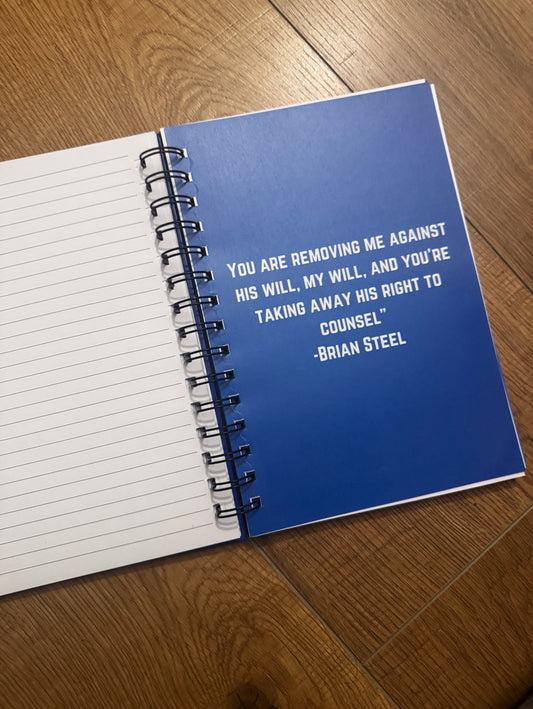 You are removing me against
his will, my will, and you're
taking away his right to
counsel"
-Brian Steel